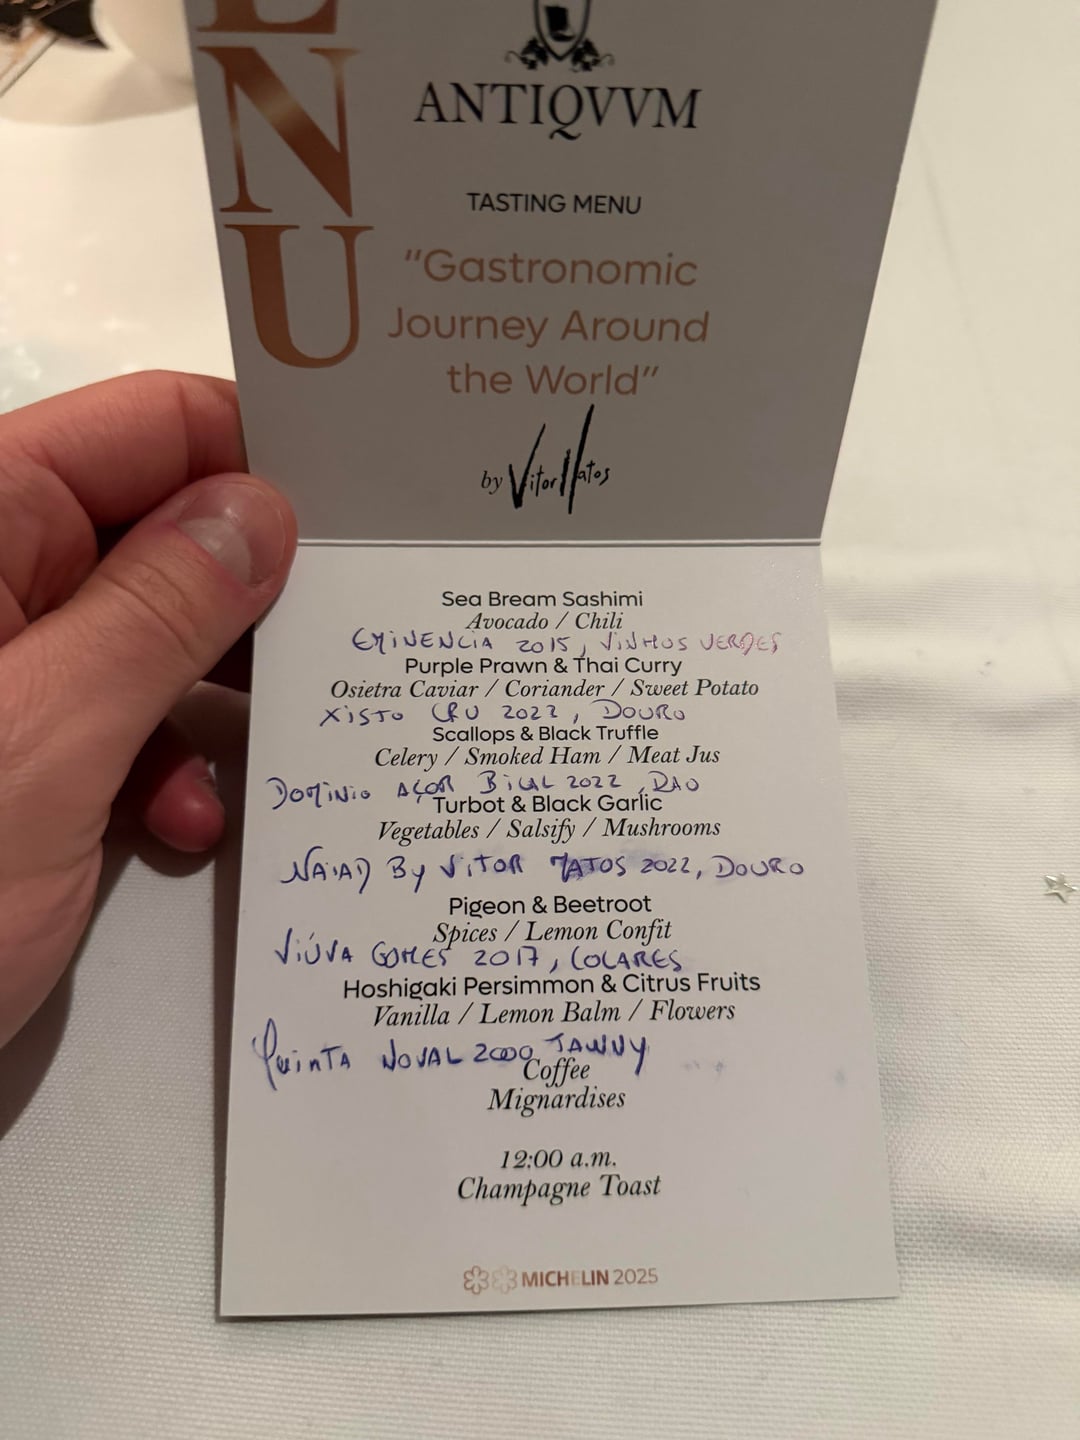 ENU
ANTIQVVM
TASTING MENU
"Gastronomic
Journey Around
the World"
by Vitor Matos
Sea Bream Sashimi
Avocado / Chili
EMINENCIA 2015, VINHOS VERDES
Purple Prawn & Thai Curry
Osietra Caviar / Coriander / Sweet Potato
XISTO CRU 2022, DOURO
Scallops & Black Truffle
Celery / Smoked Ham / Meat Jus
DOMINIO AÇOR BICAL 2022, DAO
Turbot & Black Garlic
Vegetables / Salsify / Mushrooms
NAIAD By VITOR MATOS 2022, DOURO
Pigeon & Beetroot
Spices / Lemon Confit
VIÚVA GOMES 2017, COLARES
Hoshigaki Persimmon & Citrus Fruits
Vanilla / Lemon Balm / Flowers
QUINTA NOVAL 2000 TAWNY
Coffee
Mignardises
12:00 a.m.
Champagne Toast
MICHELIN 2025